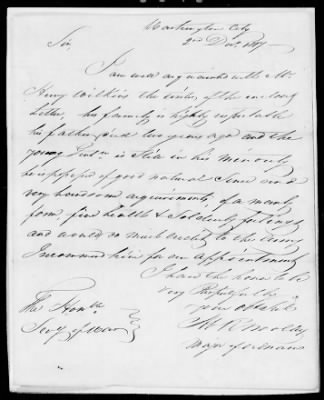 Washington City
2nd Dec. 1817
Sir,
I am well acquainted with Mr
Henry Wilkins the writer of the enclosed
letter, his family is highly respectable
his father died two years ago and the
young Gentn is still in his minority
he is possessed of good natural Sense and
very handsome acquirements, of a manly
form, fine health &
and would do much credit to the Army
I recommend him for an Appointment
I have the honor to be
very Respectfully
your obt
The Honble
Secy of War